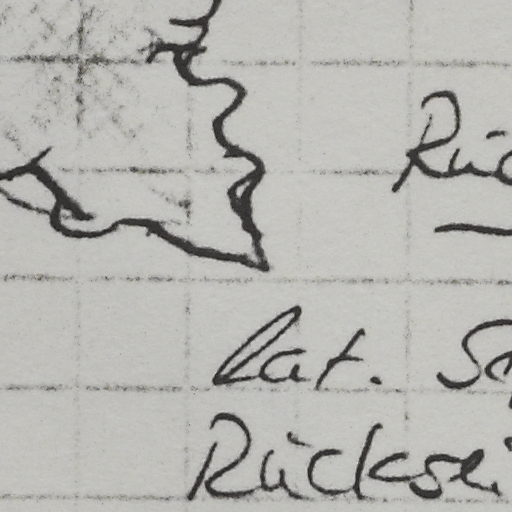 Rüc
lat. Sc
Rücksei